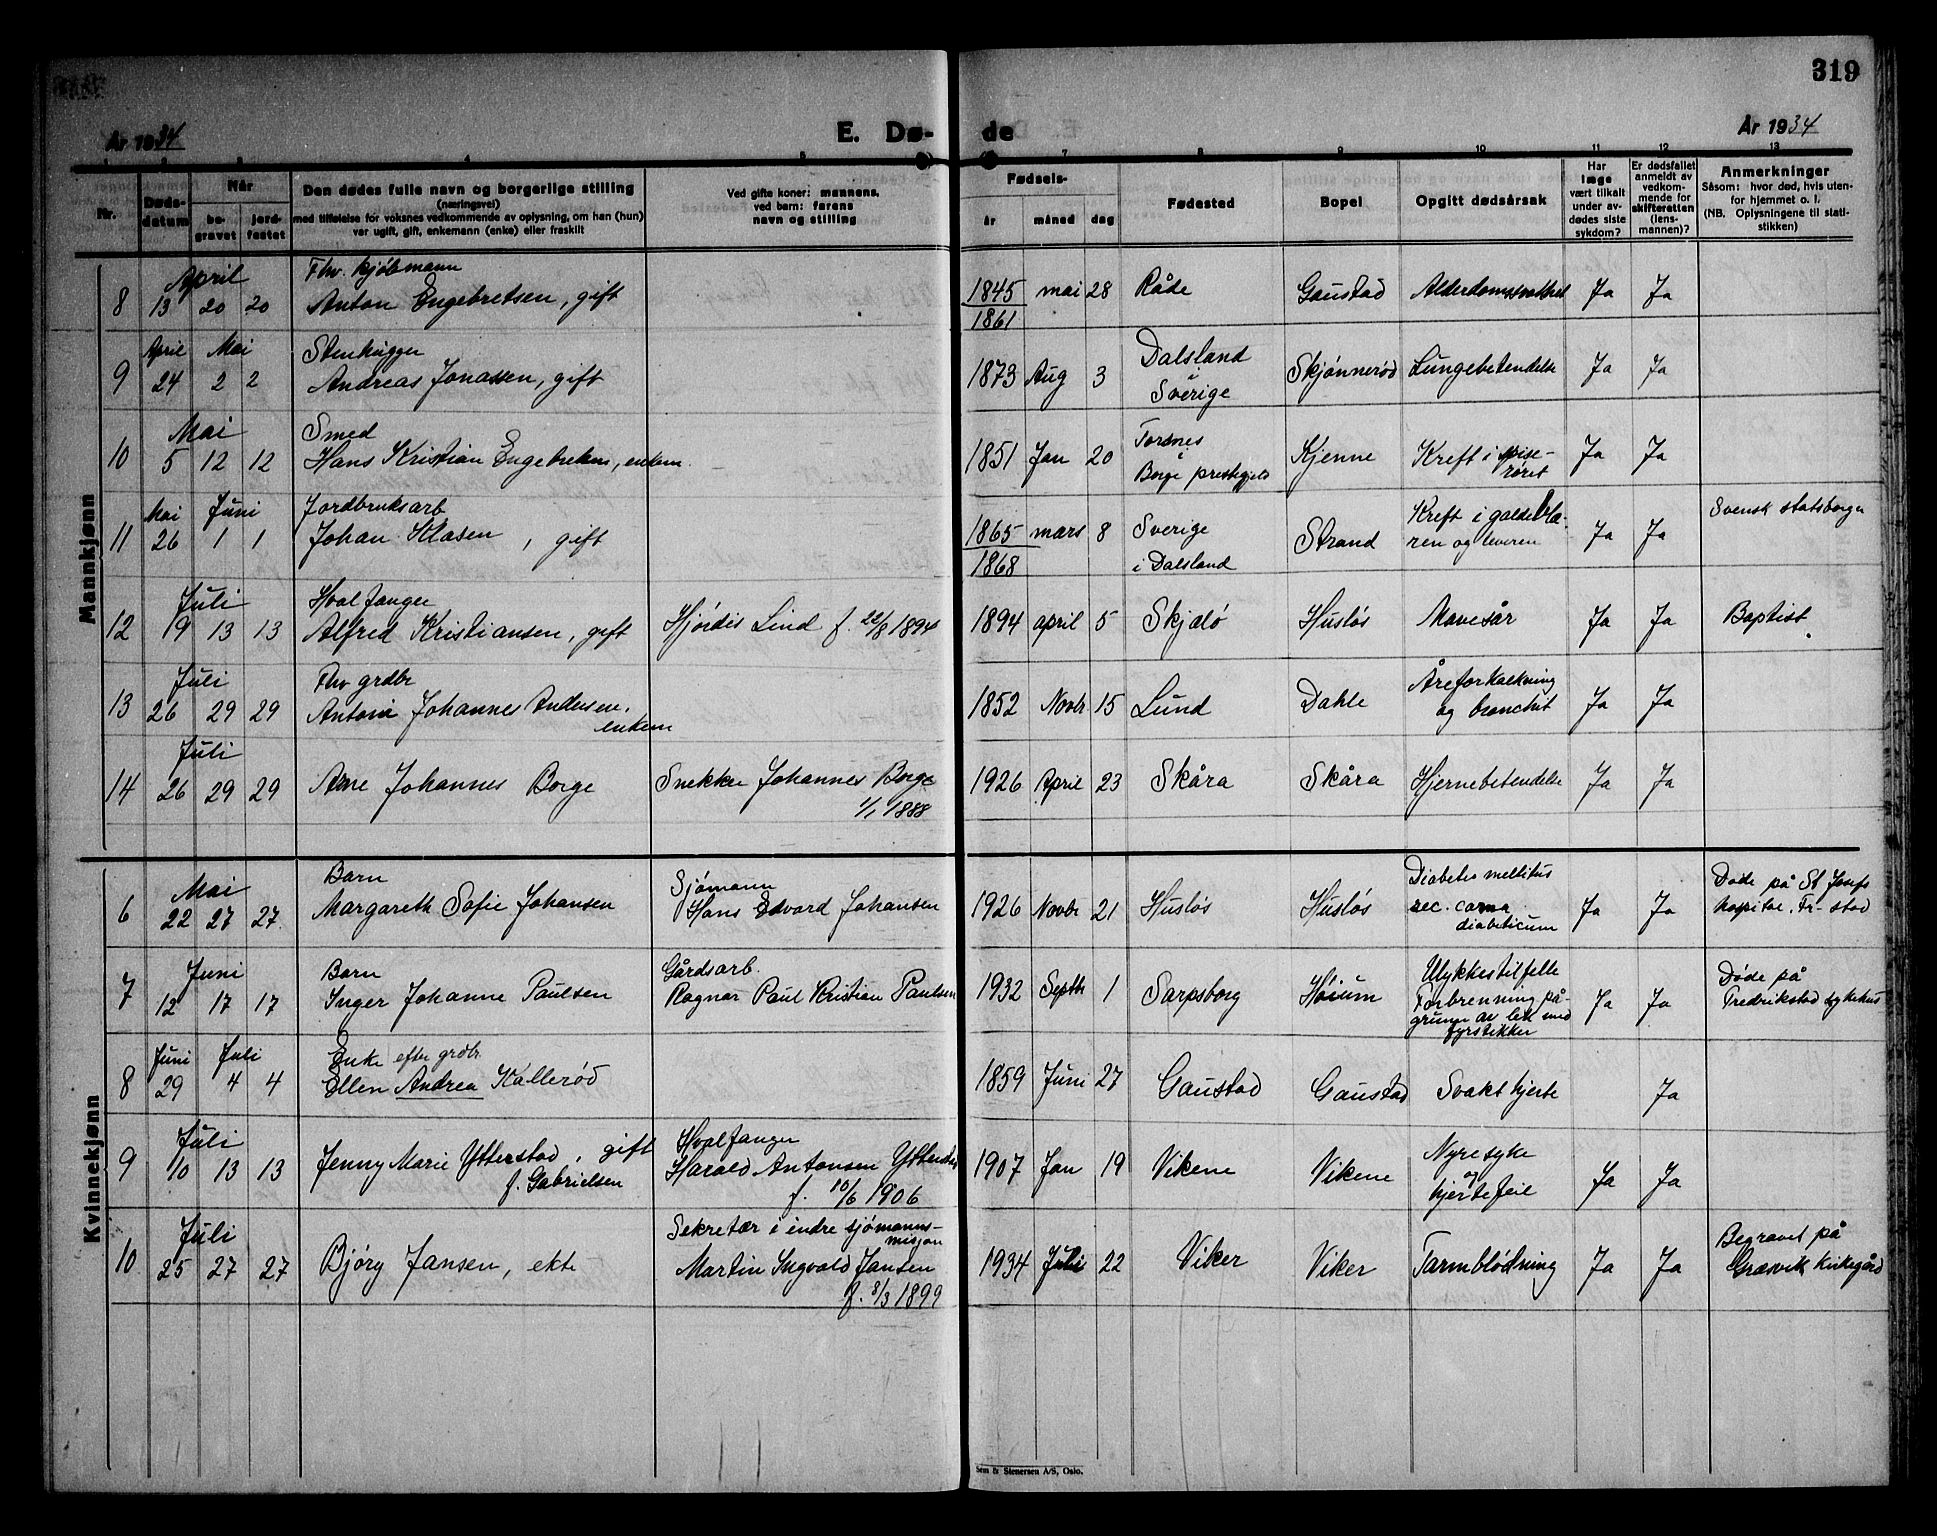 319
År 1934
E. Dø-
de
År 1934
1 2 3 4 5 7 8 9 10 11 12 13
Nr.
Døds-
datum
Når
be-
gravet
jord-
festet
Den dødes fulle navn og borgerlige stilling
(næringsvei)
med tilføielse for voksnes vedkommende av oplysning, om han (hun)
var ugift, gift, enkemann (enke) eller fraskilt
Ved gifte koner: mannens,
ved barn: farens
navn og stilling
Fødsels-
år måned dag
Fødested
Bopel
Opgitt dødsårsak
Har
læge
vært tilkalt
under av-
dødes siste
sykdom?
Er dødsfallet
anmeldt av
vedkom-
mende for
skifteretten
(lens-
mannen)?
Anmerkninger
Såsom: hvor død, hvis uten-
for hjemmet o. l.
(NB. Oplysningene til stati-
stikken)
Mannkjønn
April Fhv. kjøbmann
8 13 20 20 Anton Engebretsen, gift 1845 mai 28 Råde Gaustad Alderdomssvakhet Ja Ja
1861
April Mai Stenhugger Dalsland
9 24 2 2 Andreas Jonassen, gift 1873 Aug 3 i Skjønnerød Lungebetendelse Ja Ja
Sverige
Mai Smed Torsnes
10 5 12 12 Hans Kristian Engebretsen, enkem. 1851 Jan 20 i Kjenne Kreft i spise- Ja Ja
Borge prestegjeld røret
Mai Juni Jordbruksarb Kreft i galdeblæ- Svensk statsborger
11 26 1 1 Johan Klasen, gift 1865 mars 8 Sverige Strand ren og leveren Ja Ja
1868 i Dalsland
Juli Hvalfanger
12 9 13 13 Alfred Kristiansen, gift Hjørdis Lind f. 22/8 1894 1894 april 5 Skjælø Husløs Mavesår Ja Ja Baptist
Juli Fhv grdbr Åreforkalkning
13 26 29 29 Anton Johannes Andersen, 1852 Novbr 15 Lund Dahle og bronchit Ja Ja
enkem
Juli
14 26 29 29 Arne Johannes Borge Snekker Johannes Borge 1926 April 23 Skåra Skåra Hjernebetendelse Ja Ja
1/1 1888
Kvinnekjønn
Mai Barn Sjømann Diabetes mellitus Døde på St Josefs
6 22 27 27 Margareth Sofie Johansen Hans Edvard Johansen 1926 Novbr 21 Husløs Husløs sec. coma Ja Ja hospital, Fr-stad
diabeticum
Juni Barn Gårdsarb. Ulykkestilfelle Døde på
7 12 17 17 Inger Johanne Paulsen Ragnar Paul Kristian Paulsen 1932 Septb 1 Sarpsborg Høium Forbrenning på- Ja Ja Fredrikstad sykehus
grunn av lek med
fyrstikker
Juni Juli Enke efter grdbr
8 29 4 4 Ellen Andrea Kallerød 1859 Juni 27 Gaustad Gaustad Svakt hjerte Ja
Juli Hvalfanger Nyresyke
9 10 13 13 Jenny Marie Ytterstad, gift Harald Antonsen Ytterstad 1907 Jan 19 Vikene Vikene og Ja Ja
f. Gabrielsen f. 10/6 1906 hjertefeil
Juli Sekretær i indre sjømanns-
misjon Begravet på
10 25 27 27 Bjørg Jansen, ekte Martin Ingvald Jansen 1934 Juli 22 Viker Viker Tarmblødning Ja Ja Græsvik kirkegård
f. 8/3 1899
Sem & Stenersen A/S, Oslo.